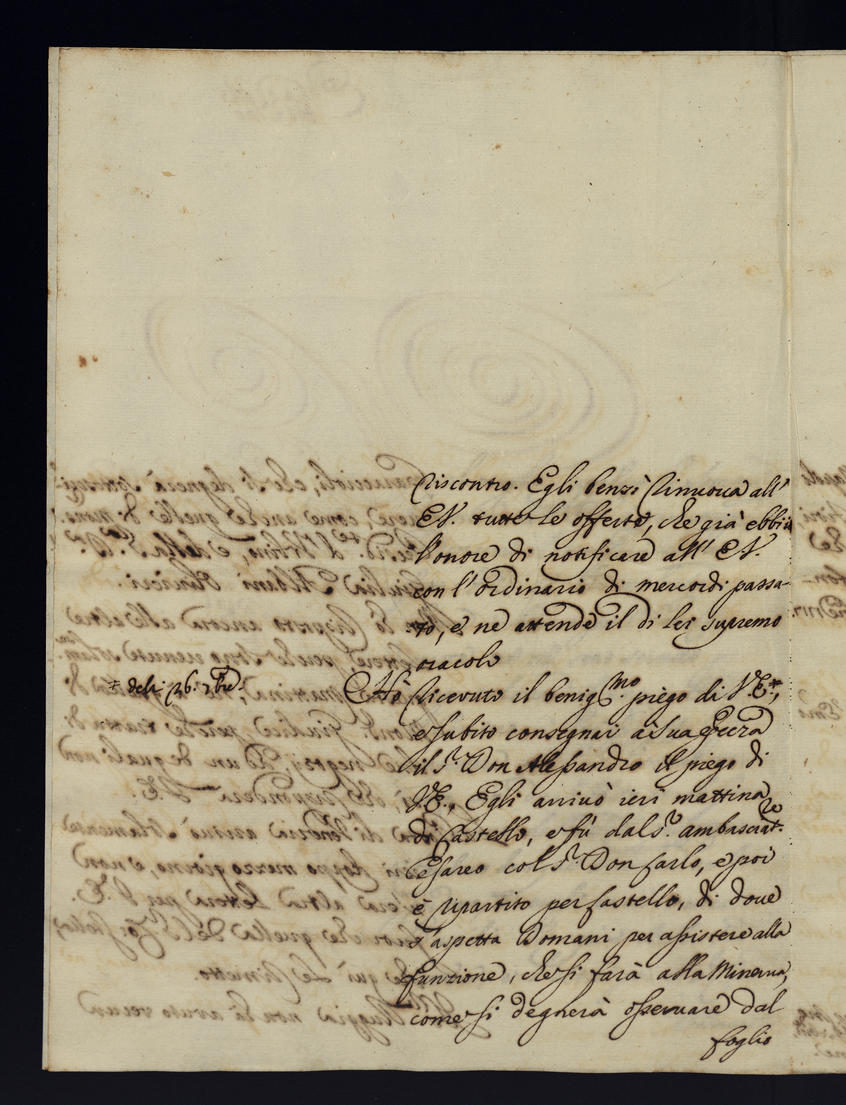 riscontro. Egli bensì rinuova all'
EV. tutte le offerte, che già ebbi
l'onore di notificare all' EV.
con l'ordinario di mercordi passa-
to, e ne attende il di lei supremo
oracolo
+ deli 26. 7bre. Hò ricevuto il benigmo. piego di V.E+,
e subito consegnai a Sua Ecczа
il Sr. Don Alessandro il piego di
VE., Egli arrivò ieri mattina
di Castello, e fù dal Sr. ambasciatre.
Cesareo col Sr. Don Carlo, e poi
è ripartito per Castello, di dove
s'aspetta Domani per assistere alla
funzione, che si farà alla Minerva,
come si degnerà osservare dal
foglio